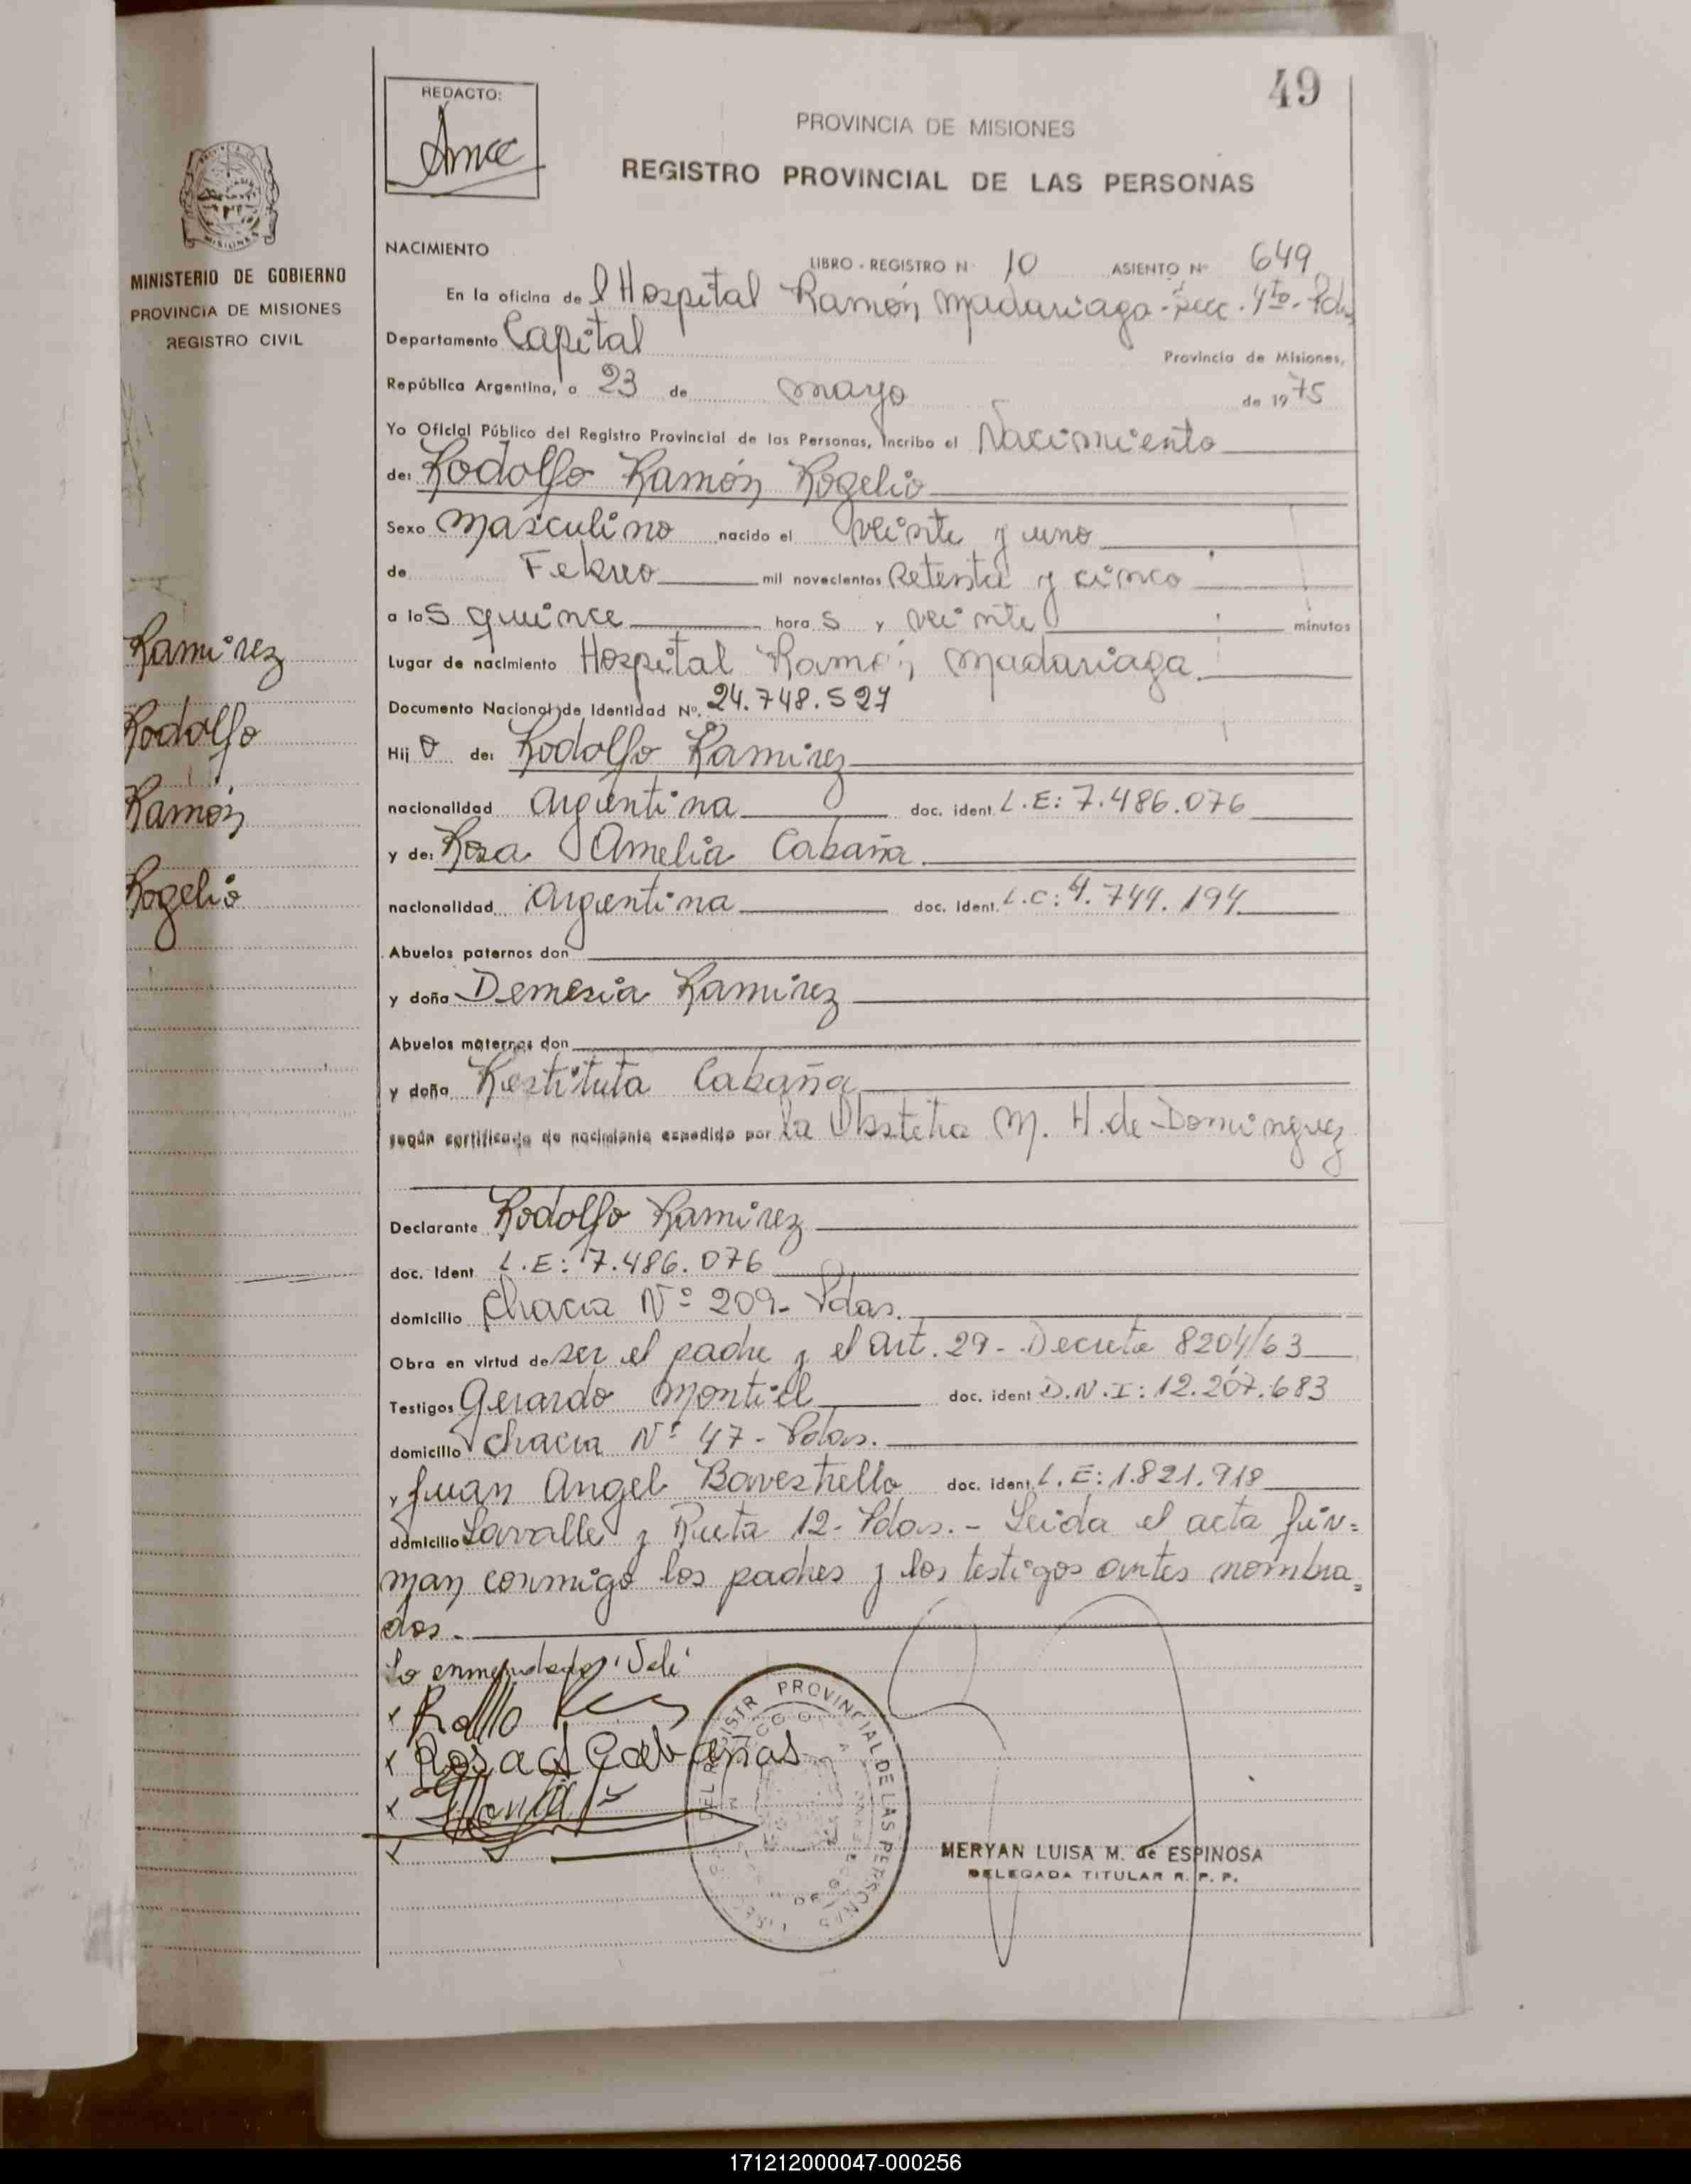 49
REDACTO:
PROVINCIA DE MISIONES
REGISTRO PROVINCIAL DE LAS PERSONAS
MISIONES
MINISTERIO DE GOBIERNO
PROVINCIA DE MISIONES
REGISTRO CIVIL
NACIMIENTO
LIBRO - REGISTRO N 10 ASIENTO Nº 649
En la oficina de l Hospital Ramón Madariaga - Secc. 4to - Pdas
Departamento Capital Provincia de Misiones,
República Argentina, a 23 de mayo de 1975
Yo Oficial Público del Registro Provincial de las Personas, incribo el Nacimiento
de: Rodolfo Ramón Rogelio
Sexo masculino nacido el veinte y uno
de Febrero mil novecientos setenta y cinco
a las quince horas y veinte minutos
Lugar de nacimiento Hospital Ramón Madariaga
Documento Nacional de Identidad Nº. 24.748.527
Hijo de: Rodolfo Ramirez
nacionalidad argentina doc. ident. L.E: 7.486.076
y de: Rosa Amelia Cabaña
nacionalidad argentina doc. ident. L.C: 4.744.194
Abuelos paternos don
y doña Demesia Ramirez
Abuelos maternos don
y doña Restituta Cabaña
según certificado de nacimiento expedido por la Obstetra M. H. de Dominguez
Declarante Rodolfo Ramirez
doc. Ident L.E: 7.486.076
domicilio Chacra Nº 209 - Pdas.
Obra en virtud de ser el padre y el art. 29 - Decreto 8204/63
Testigos Gerardo Montiel doc. ident D.N.I: 12.207.683
domicilio Chacra Nº 47 - Pdas.
y Juan Angel Bavestrello doc. ident. L.E: 1.821.918
domicilio Lavalle y Ruta 12 - Pdas. - Leida el acta fir=
man conmigo los padres y los testigos antes nombra=
dos.-
Lo enmendado "Vale"
x Rosa A Cabañas
x
x
DEL REGISTR PROVINCIAL DE LAS PERSONAS
MERYAN LUISA M. de ESPINOSA
DELEGADA TITULAR R. P. P.
Ramirez
Rodolfo
Ramón
Rogelio
171212000047-000256